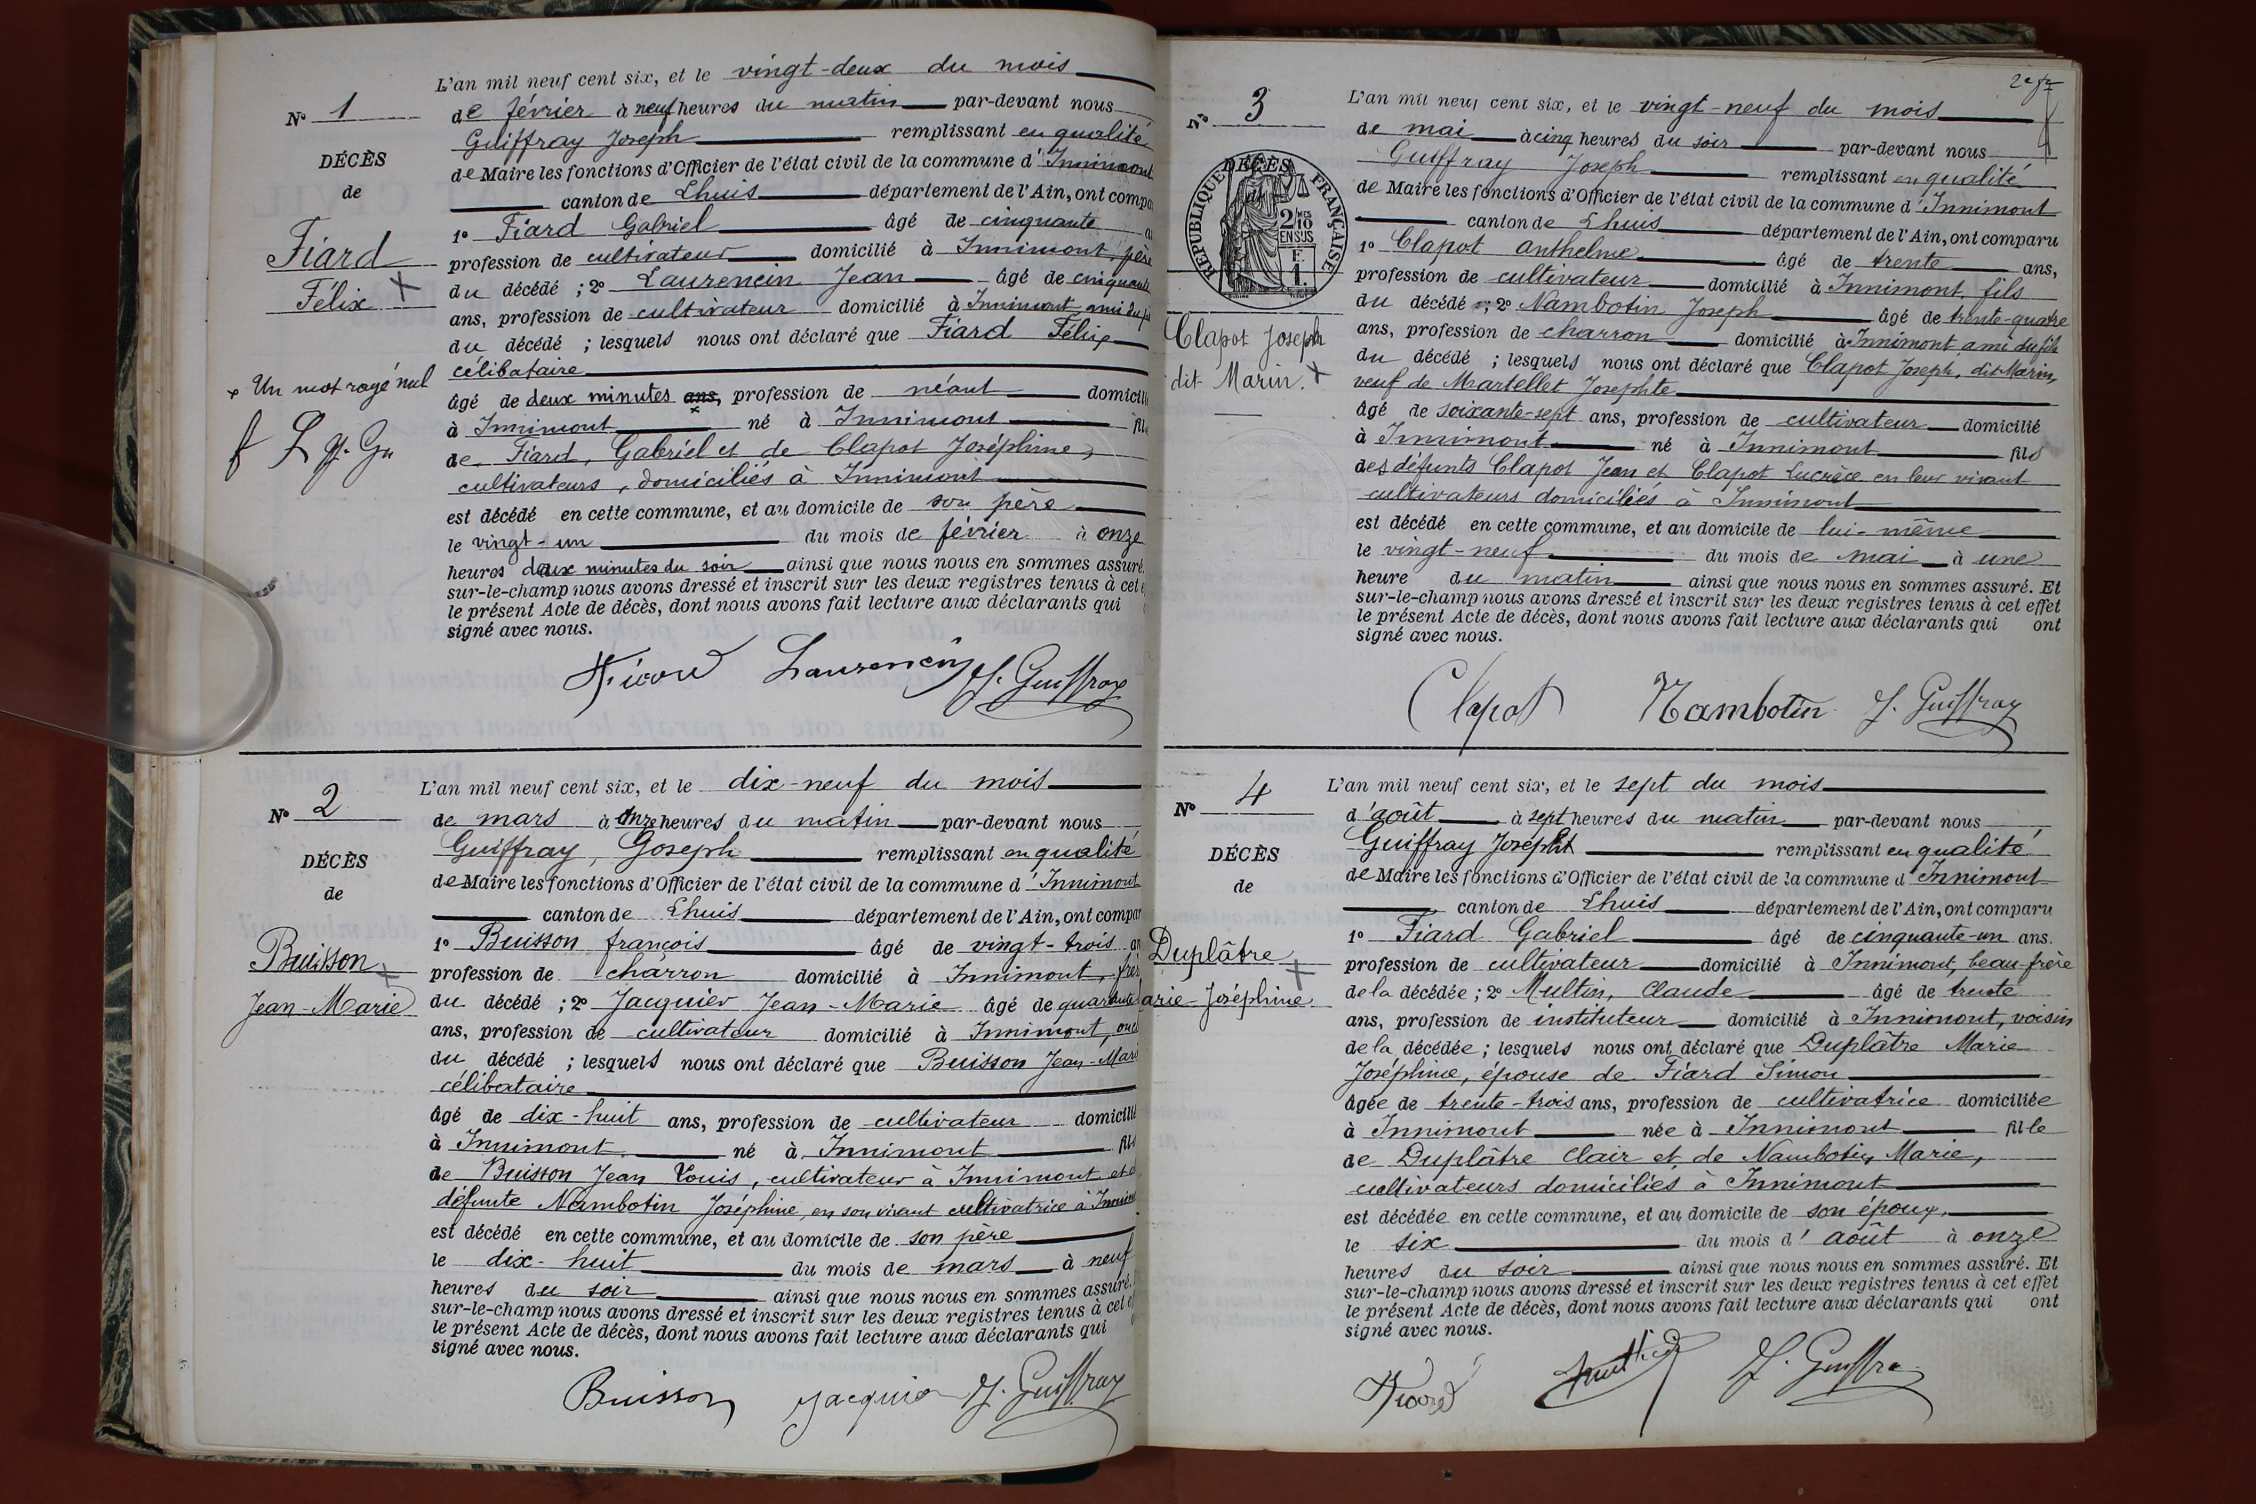 L'an mil neuf cent six, et le vingt-deux du mois
N° 1
de février à neuf heures du matin par-devant nous
Guiffray Joseph remplissant en qualité
DÉCÈS
de Maire les fonctions d'Officier de l'état civil de la commune d'Innimont
de
canton de Lhuis département de l'Ain, ont compa
Fiard
Félix
1° Fiard Gabriel âgé de cinquante
profession de cultivateur domicilié à Innimont, père
du décédé ; 2° Laurencin Jean âgé de cinquante
ans, profession de cultivateur domicilié à Innimont ami du
du décédé ; lesquels nous ont déclaré que Fiard Félix
célibataire
x Un mot rayé nul
âgé de deux minutes ans, profession de néant domicili
à Innimont né à Innimont fils
de Fiard, Gabriel et de Clapot Joséphine,
cultivateurs, domiciliés à Innimont
est décédé en cette commune, et au domicile de son père
le vingt-un du mois de février à onze
heures deux minutes du soir ainsi que nous nous en sommes assuré.
sur-le-champ nous avons dressé et inscrit sur les deux registres tenus à cet e
le présent Acte de décès, dont nous avons fait lecture aux déclarants qui
signé avec nous.
Fiard Laurencin J. Guiffray
L'an mil neuf cent six, et le dix-neuf du mois
N° 2
de mars à onze heures du matin par-devant nous
Guiffray, Joseph remplissant en qualité
DÉCÈS
de Maire les fonctions d'Officier de l'état civil de la commune d'Innimont
de
canton de Lhuis département de l'Ain, ont compar
Buisson
Jean-Marie
1° Buisson françois âgé de vingt-trois an
profession de charron domicilié à Innimont, frèr
du décédé ; 2° Jacquier Jean-Marie âgé de quarante
ans, profession de cultivateur domicilié à Innimont, oncl
du décédé ; lesquels nous ont déclaré que Buisson Jean-Mari
célibataire
âgé de dix-huit ans, profession de cultivateur domicilié
à Innimont né à Innimont fils
de Buisson Jean Louis, cultivateur à Innimont et d
défunte Nambotin Joséphine, en son vivant cultivatrice à Innimont
est décédé en cette commune, et au domicile de son père
le dix-huit du mois de mars à neuf
heures du soir ainsi que nous nous en sommes assuré.
sur-le-champ nous avons dressé et inscrit sur les deux registres tenus à cet ef
le présent Acte de décès, dont nous avons fait lecture aux déclarants qui
signé avec nous.
Buisson Jacquier J. Guiffray
L'an mil neuf cent six, et le vingt-neuf du mois
N° 3
de mai à cinq heures du soir par-devant nous
Guiffray Joseph remplissant en qualité
DÉCÈS
de
RÉPUBLIQUE FRANÇAISE
2/10 MES
EN SUS
1 F.
de Maire les fonctions d'Officier de l'état civil de la commune d'Innimont
canton de Lhuis département de l'Ain, ont comparu
1° Clapot Anthelme âgé de trente ans,
profession de cultivateur domicilié à Innimont, fils
du décédé ; 2° Nambotin Joseph âgé de trente-quatre
Clapot Joseph
dit Marin.
ans, profession de charron domicilié à Innimont ami du fils
du décédé ; lesquels nous ont déclaré que Clapot Joseph, dit Marin,
veuf de Martellet Josephte
âgé de soixante-sept ans, profession de cultivateur domicilié
à Innimont né à Innimont fils
des défunts Clapot Jean et Clapot Lucrèce en leur vivant
cultivateurs domiciliés à Innimont
est décédé en cette commune, et au domicile de lui-même
le vingt-neuf du mois de mai à une
heure du matin ainsi que nous nous en sommes assuré. Et
sur-le-champ nous avons dressé et inscrit sur les deux registres tenus à cet effet
le présent Acte de décès, dont nous avons fait lecture aux déclarants qui ont
signé avec nous.
Clapot Nambotin J. Guiffray
L'an mil neuf cent six, et le sept du mois
N° 4
d'août à sept heures du matin par-devant nous
Guiffray Joseph remplissant en qualité
DÉCÈS
de Maire les fonctions d'Officier de l'état civil de la commune d'Innimont
de
canton de Lhuis département de l'Ain, ont comparu
Duplâtre
arie Joséphine
1° Fiard Gabriel âgé de cinquante-un ans.
profession de cultivateur domicilié à Innimont, beau-frère
de la décédée ; 2° Multin, Claude âgé de trente
ans, profession de instituteur domicilié à Innimont, voisin
de la décédée ; lesquels nous ont déclaré que Duplâtre Marie
Joséphine, épouse de Fiard Simon
âgée de trente-trois ans, profession de cultivatrice domiciliée
à Innimont née à Innimont fille
de Duplâtre Clair et de Nambotin Marie,
cultivateurs domiciliés à Innimont
est décédée en cette commune, et au domicile de son époux,
le six du mois d'août à onze
heures du soir ainsi que nous nous en sommes assuré. Et
sur-le-champ nous avons dressé et inscrit sur les deux registres tenus à cet effet
le présent Acte de décès, dont nous avons fait lecture aux déclarants qui ont
signé avec nous.
Fiard J. Guiffra